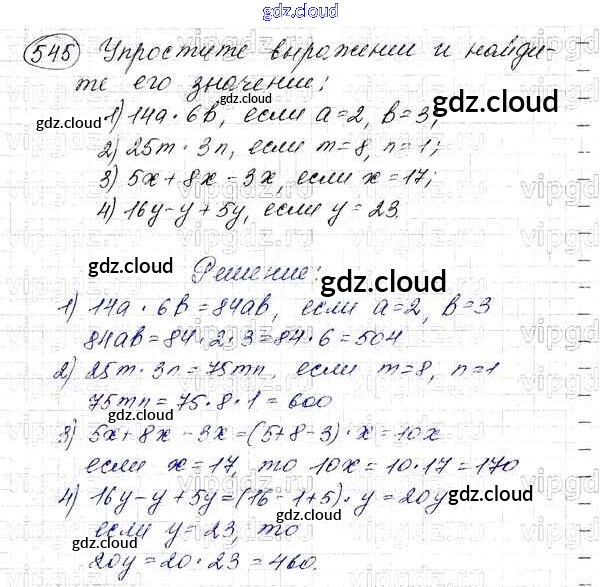 gdz.cloud
545 Упростите выражении и найди-
те его значение:
gdz.cloud
gdz.cloud
gdz.cloud
1) 14a · 6b, если a=2, b=3;
2) 25m · 3n, если m=8, n=1;
3) 5x+8x-3x, если x=17;
4) 16y-y+5y, если y=23.
gdz.cloud
gdz.cloud
Решение:
1) 14a · 6b=84ab, если a=2, b=3
84ab=84·2·3=84·6=504
2) 25m·3n=75mn, если m=8, n=1
75mn=75·8·1=600
gdz.cloud
3) 5x+8x-3x=(5+8-3)·x=10x
если x=17, то 10x=10·17=170
4) 16y-y+5y=(16-1+5)·y=20y
gdz.cloud
если y=23, то
gdz.cloud
20y=20·23=460.